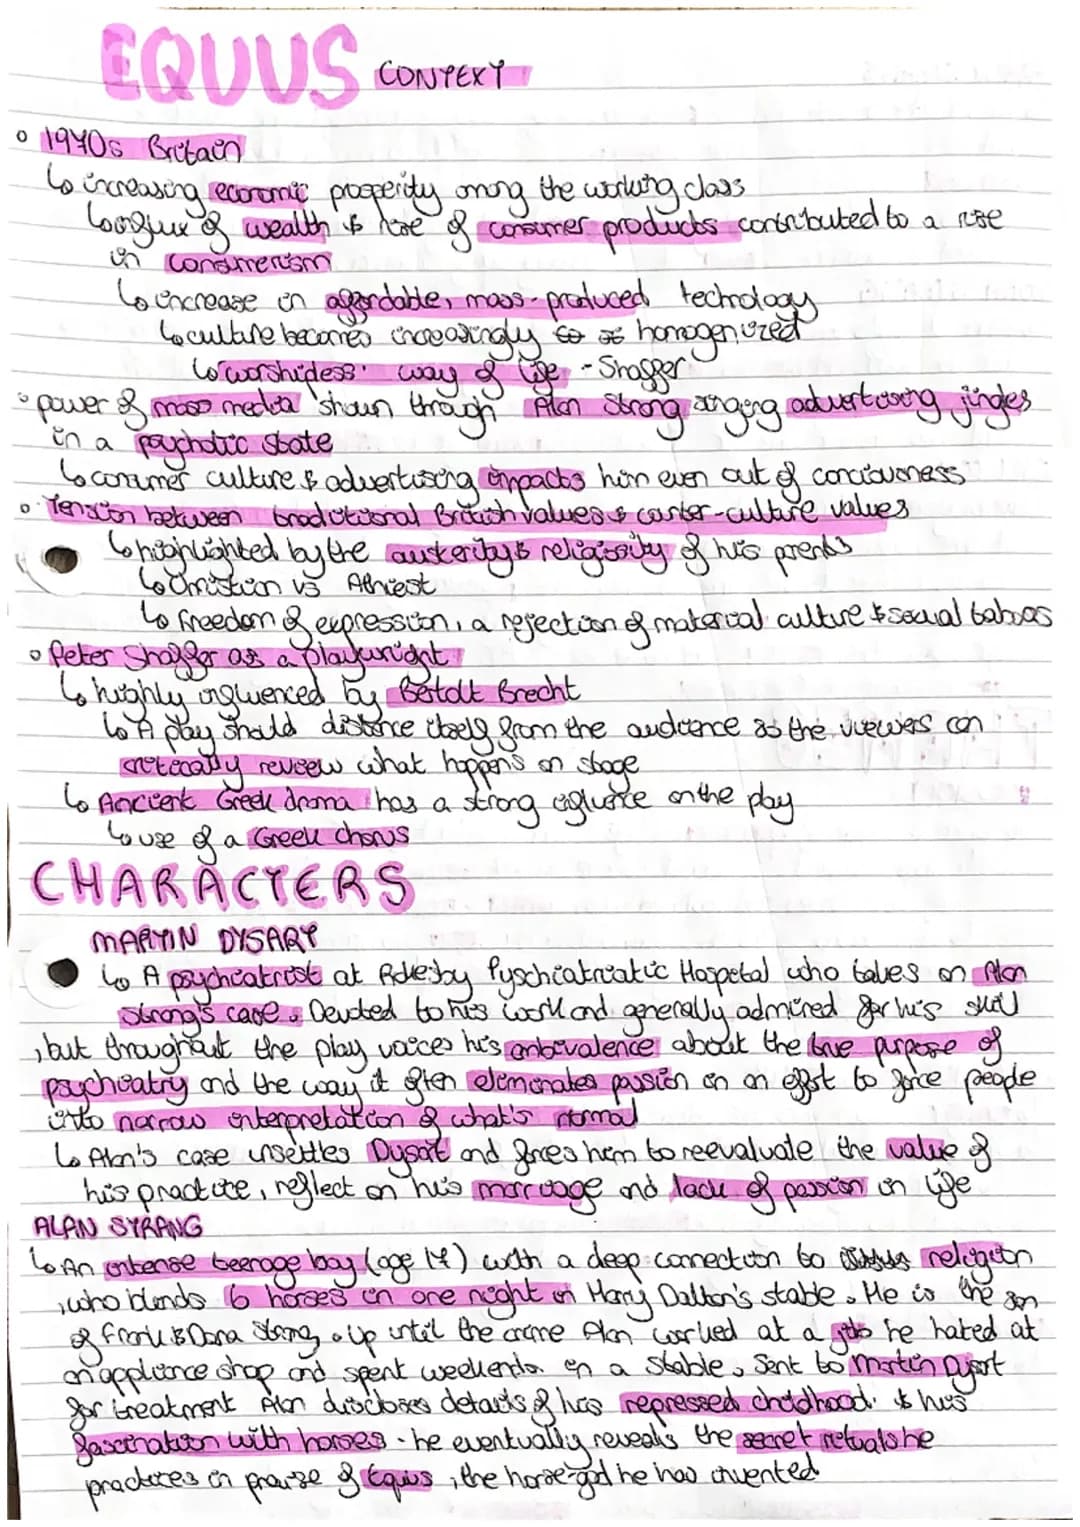 EQUUS CONTEXT
1970s Britain
↳ increasing economic prosperity among the working class
↳ influx of wealth & rise of consumer products contributed to a rise
in consumerism
↳ increase in affordable, mass-produced technology
↳ culture becomes increasingly homogenized
↳ 'worshipless' way of life - Shaffer
power of mass media shown through Alan Strang singing advertising jingles
in a psychotic state
↳ consumer culture & advertising impacts him even out of conciousness
Tension between traditional British values & counter-culture values
↳ highlighted by the austerity & religiosity of his parents
↳ Christian vs Athiest
↳ freedom of expression, a rejection of material culture & sexual taboos
Peter Shaffer as a playwright
↳ highly influenced by Bertolt Brecht
↳ A play should distance itself from the audience as the viewers can
critically review what happens on stage
↳ Ancient Greek drama has a strong influence on the play
↳ use of a Greek chorus
CHARACTERS
MARTIN DYSART
↳ A psychiatrist at Rokesby Pyschiatriatic Hospital who takes on Alan
Strang's case. Devoted to his work and generally admired for his skill
, but throughout the play voices his ambivalence about the true purpose of
psychiatry and the way it often eliminates passion in an effort to force people
into narrow interpretation of what's normal
↳ Alan's case unsettles Dysart and forces him to reevaluate the value of
his practice, reflect on his marriage and lack of passion in life
ALAN STRANG
↳ An intense teenage boy (age 17) with a deep connection to religion
, who blinds 6 horses in one night in Harry Dalton's stable. He is the son
of Frank & Dora Strang. Up until the crime Alan worked at a job he hated at
an appliance shop and spent weekends in a stable. Sent to Martin Dysart
for treatment Alan discloses details of his repressed childhood & his
fascination with horses - he eventually reveals the secret rituals he
practices in praise of Equus, the horse-god he has invented